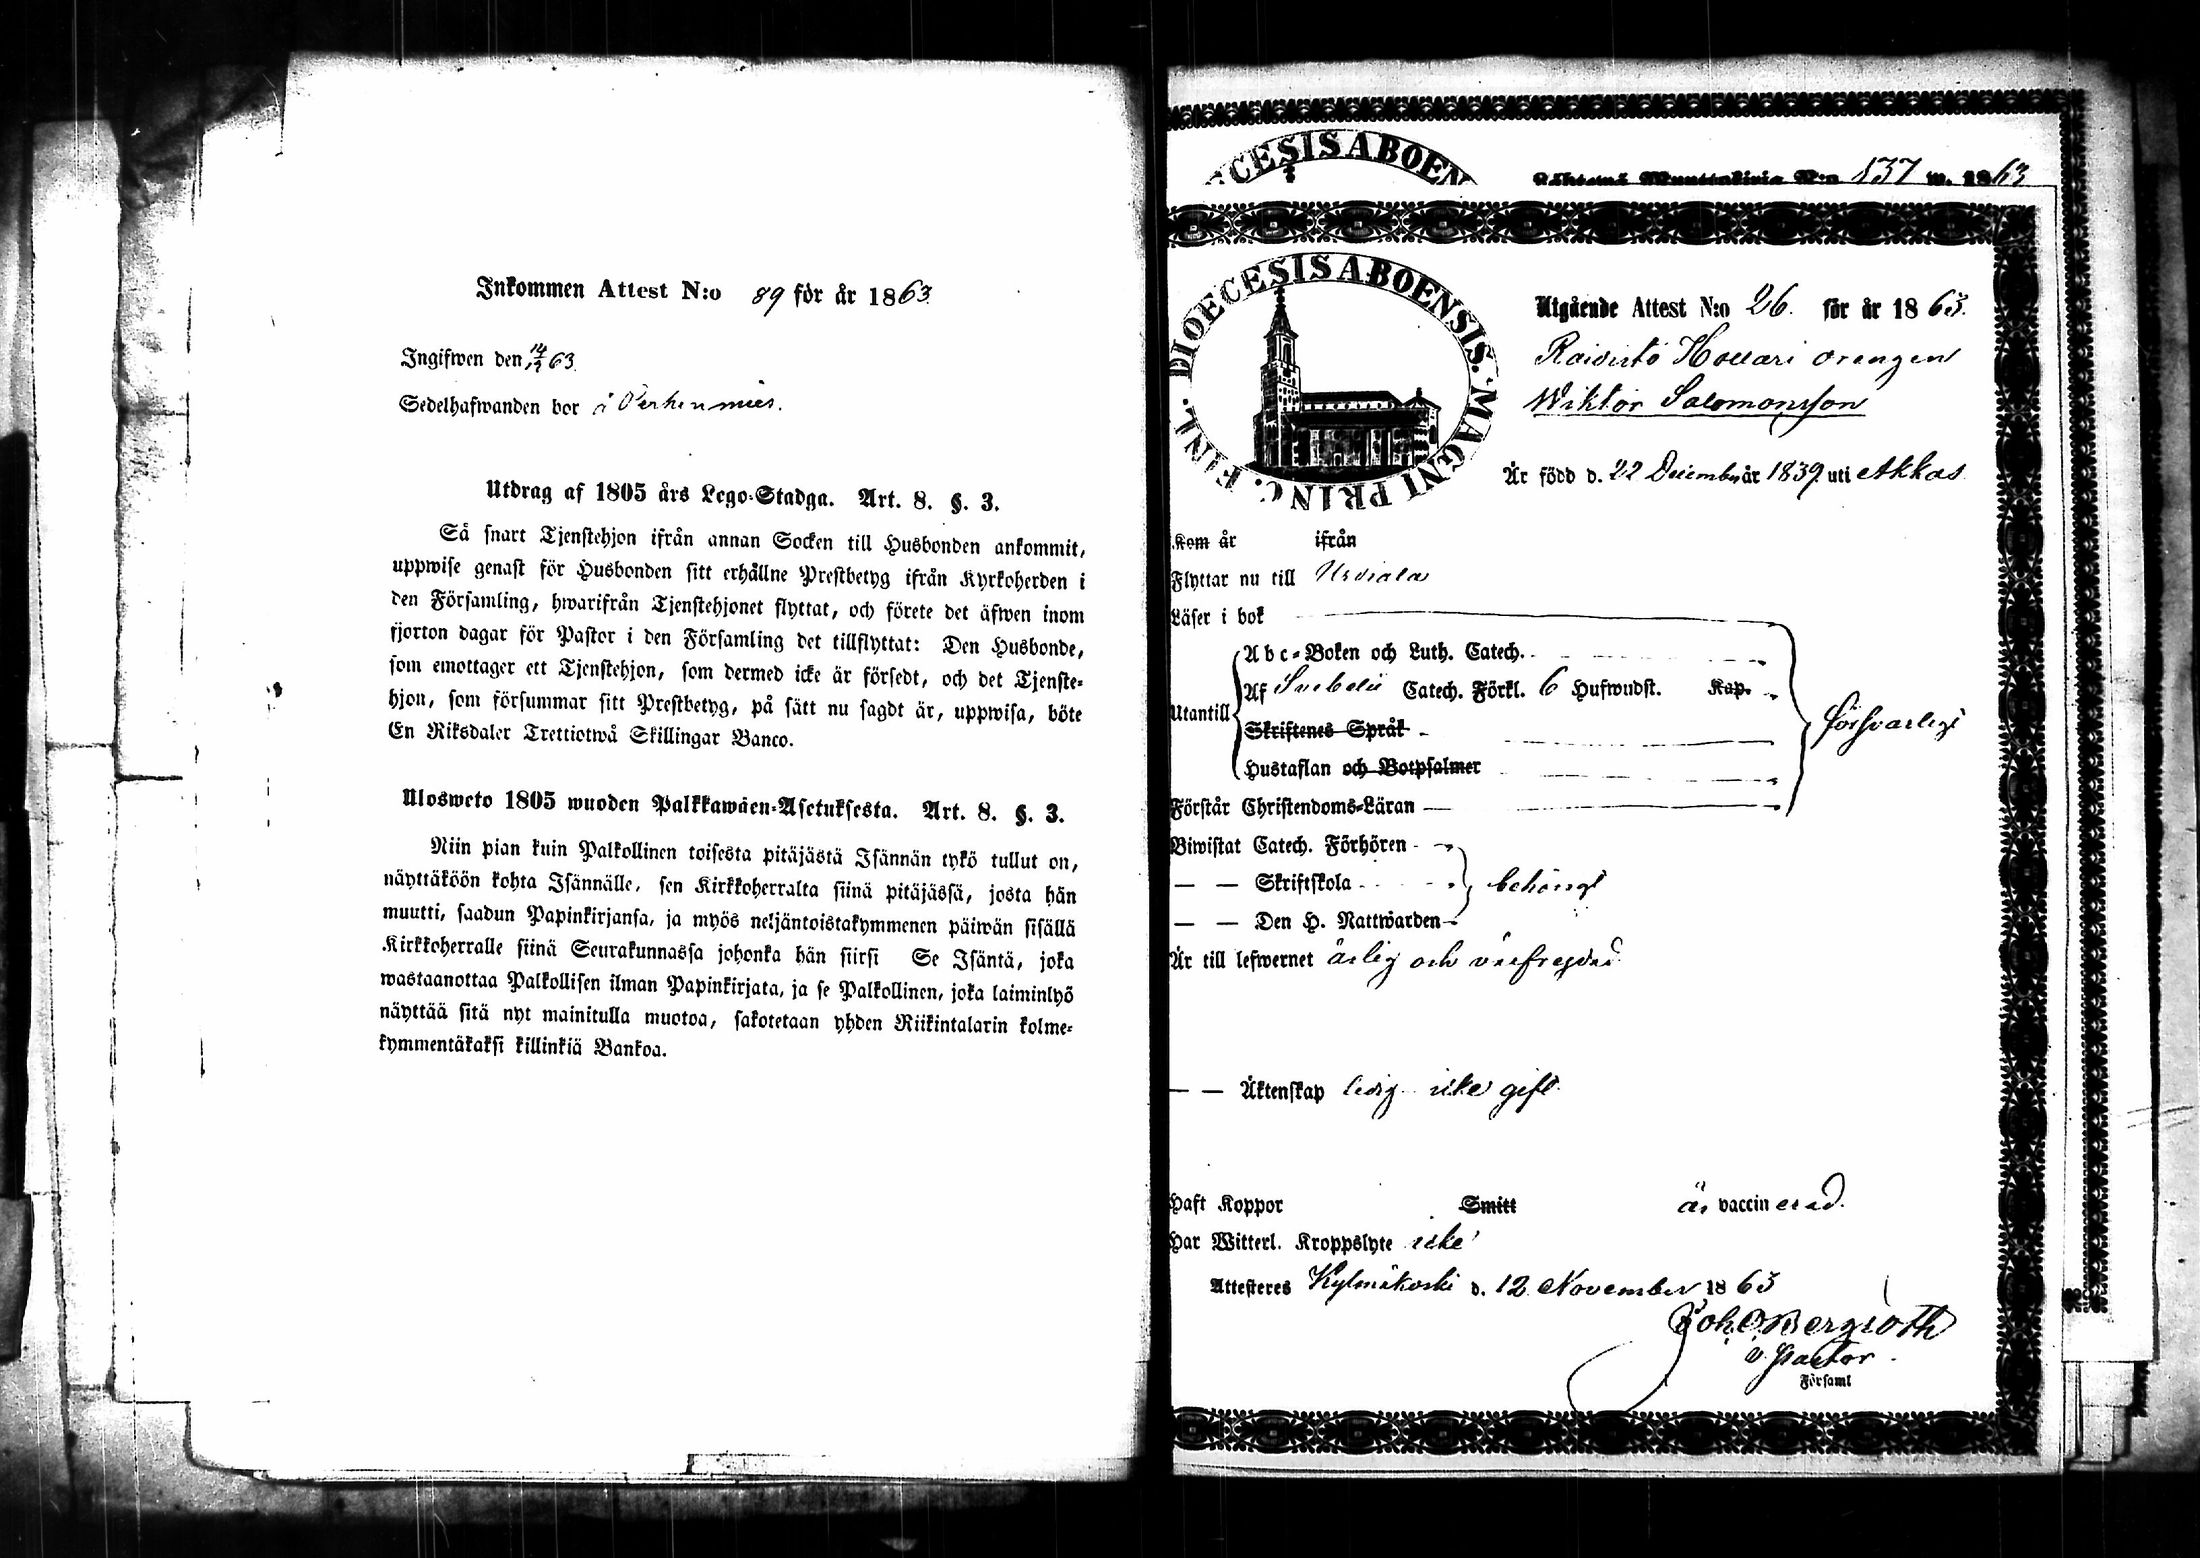 Inkommen Attest N:o 89 för år 1863.
Ingifwen den 63.
Sedelhafwanden bor å
Utdrag af 1805 års Lego-Stadga. Art. 8. §. 3.
Så snart Tjenstehjon ifrån annan Socken till Husbonden ankommit,
uppwise genast för Husbonden sitt erhållne Prestbetyg ifrån Kyrkoherden i
den Församling, hwarifrån Tjenstehjonet flyttat, och förete det äfwen inom
fjorton dagar för Pastor i den Församling det tillflyttat: Den Husbonde,
som emottager ett Tjenstehjon, som dermed icke är försedt, och det Tjenste-
hjon, som försummar sitt Prestbetyg, på sätt nu sagdt är, uppwisa, böte
En Riksdaler Trettiotwå Skillingar Banco.
Ulosweto 1805 wuoden Palkkawäen-Asetuksesta. Art. 8. §. 3.
Niin pian kuin Palkollinen toisesta pitäjästä Isännän tykö tullut on,
näyttäköön kohta Isännälle, sen Kirkkoherralta siinä pitäjässä, josta hän
muutti, saadun Papinkirjansa, ja myös neljäntoistakymmenen päiwän sisällä
Kirkkoherralle siinä Seurakunnassa johonka hän siirsi Se Isäntä, joka
wastaanottaa Palkollisen ilman Papinkirjata, ja se Palkollinen, joka laiminlyö
näyttää sitä nyt mainitulla muotoa, sakotetaan yhden Riikintalarin kolme-
kymmentäkaksi killinkiä Bankoa.
CESIS ABOEN
Lähtewä Muuttokirja N:o 137 w. 1863
DIOECESIS ABOENSIS. MAGNI PRINC. FINL.
Utgående Attest N:o 26. för år 1863.
Raivisto drengen
Wiktor Salomonsson
Är född d. 22 December år 1839. uti Akkas
Kom år ifrån
Flyttar nu till Urdiala
Läser i bok
Utantill
Abc-Boken och Luth. Catech.
Af Svebelii Catech. Förkl. 6 Hufwudst. Kap.
Skriftenes Språk
Hustaflan och Botpsalmer
försvarligt
Förstår Christendoms-Läran
Biwistat Catech. Förhören
— — Skriftskola
behörigt
— — Den H. Nattwarden
Är till lefwernet ärlig och välfrejdad
— — Äktenskap ledig icke gift
Haft Koppor Smitt är vaccinerad.
Har Witterl. Kroppslyte icke
Attesteres Kylmäkoski d. 12 November 1863
Joh. O. Bergroth
v. Pastor
Församl